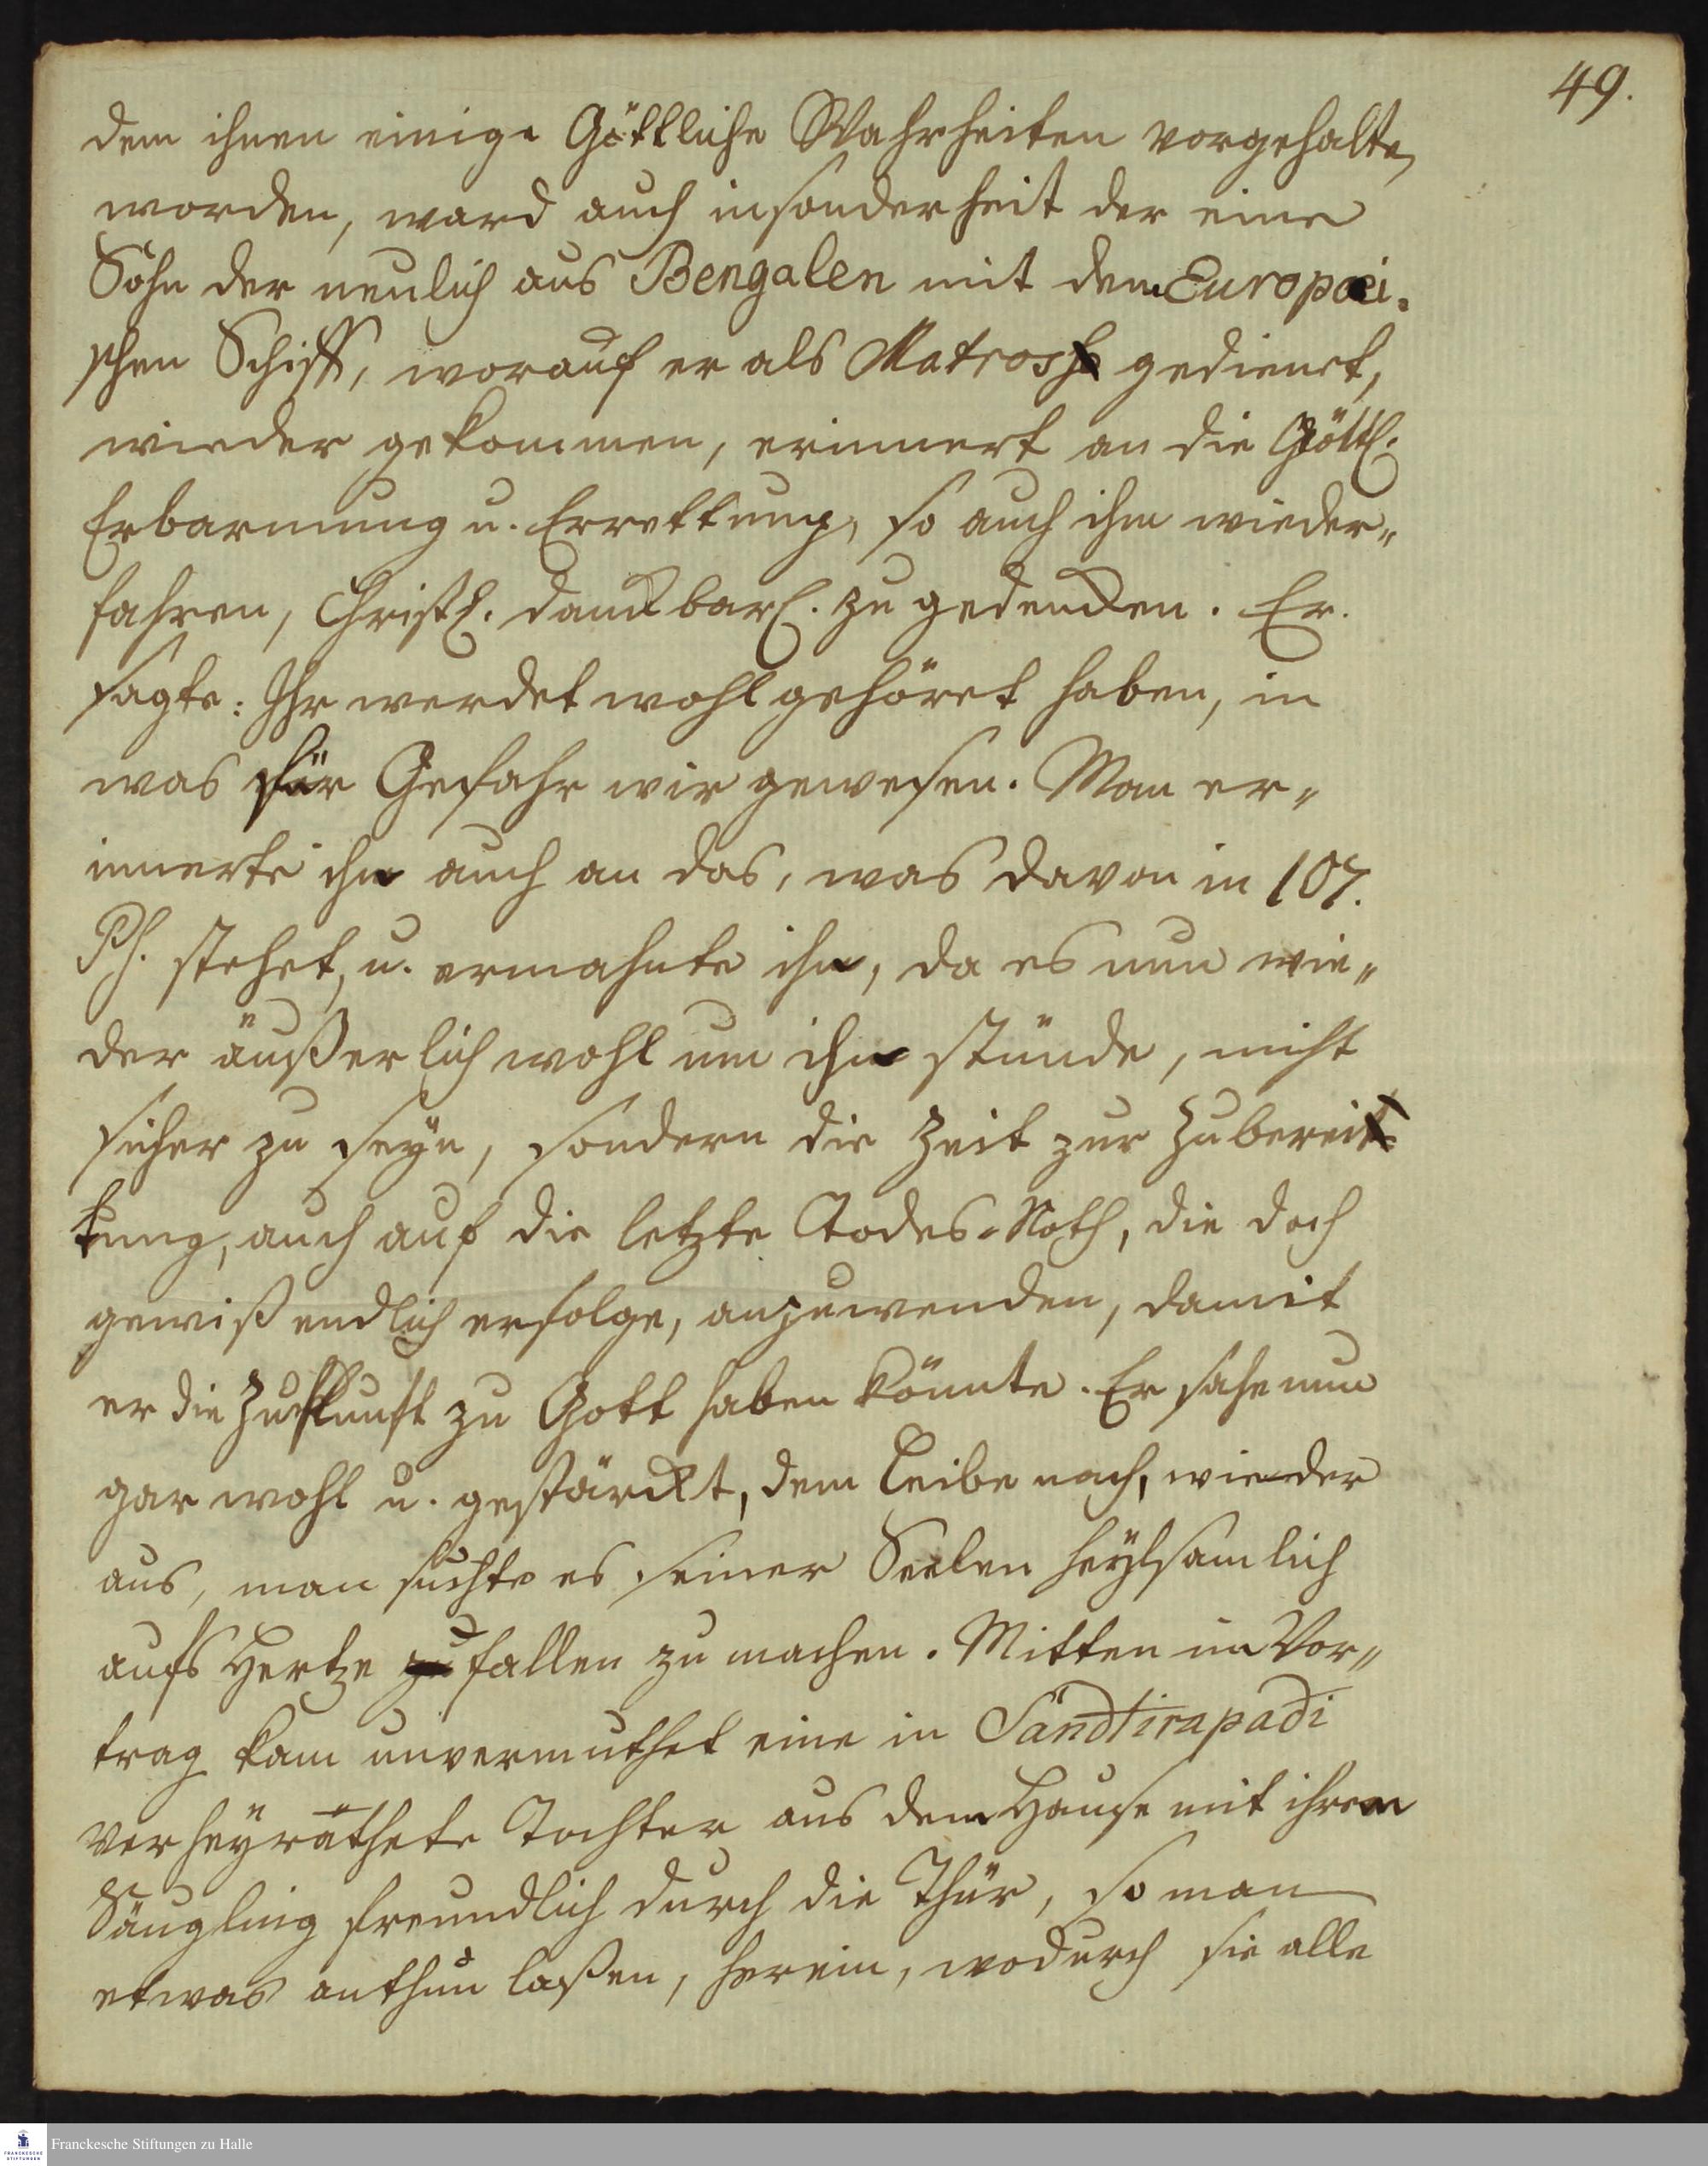 49.
dem ihnen einige Göttliche Wahrheiten vorgehalten
worden, ward auch insonderheit der eine
Sohn der neulich aus Bengalen mit dem Europæi-
schen Schiff, worauf er als Matros gedienet,
wieder gekommen, erinnert an die Göttl.
Erbarmung u. Errettung, so auch ihm wieder-
fahren, Christl. danckbarl. zu gedencken. Er
sagte: Ihr werdet wohl gehöret haben, in
was für Gefahr wir gewesen. Man er-
innerte ihn auch an das, was davon in 107.
Ps. stehet, u. ermahnte ihn, da es nun wie-
der äußerlich wohl um ihn stünde, nicht
sicher zu seyn, sondern die Zeit zur Zuberei-
tung, auch auf die letzte Todes-Noth, die doch
gewiß endlich erfolge, anzuwenden, damit
er die Zuflucht zu Gott haben könnte. Er sahe nun
gar wohl u. gestärckt, dem Leibe nach, wieder
aus, man suchte es seiner Seelen heylsamlich
aufs Hertze fallen zu machen. Mitten im Vor-
trag kam unvermuthet eine in Sandtirapadi
verheyrathete Tochter aus dem Hause mit ihrem
Säugling freundlich durch die Thür, so man
etwas authun laßen, herein, wodurch sie alle
Franckesche Stiftungen zu Halle